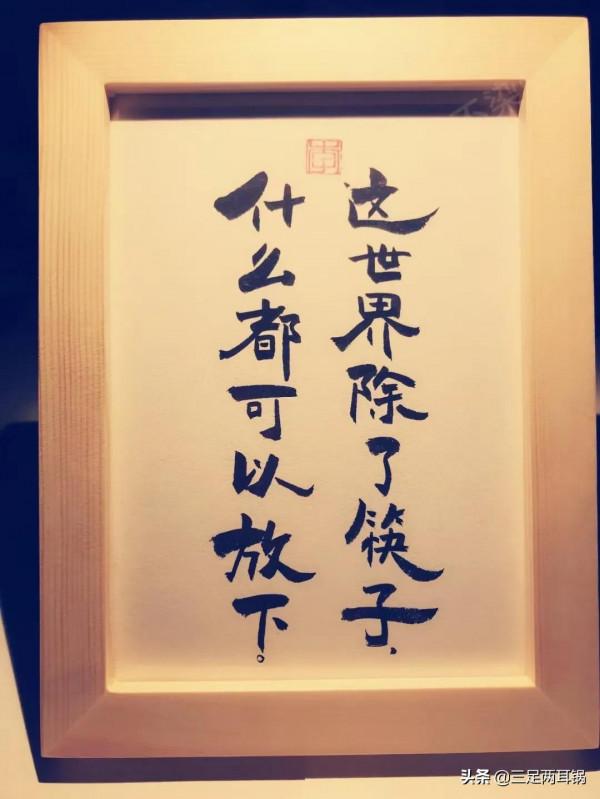 这世界除了筷子，
什么都可以放下。
头条 @三足两耳锅